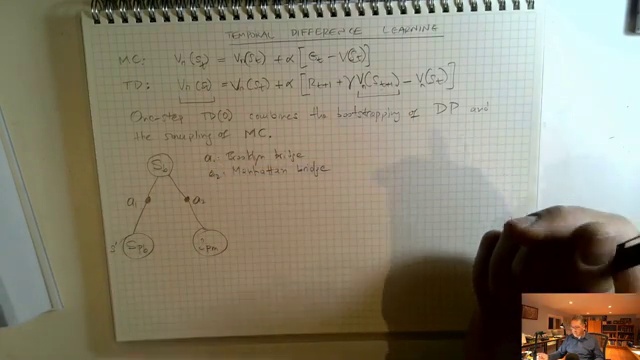 TEMPORAL DIFFERENCE LEARNING
MC: Vπ(St) = Vπ(St) + α [Gt − V(St)]
TD: Vπ(S) = Vπ(St) + α [Rt+1 + γVπ(St+1) − Vπ(St)]
One-step TD(0) combines the bootstrapping of DP and
the sampling of MC.
Sb a1 Brooklyn bridge
a2: Manhattan bridge
a1 a2
s'